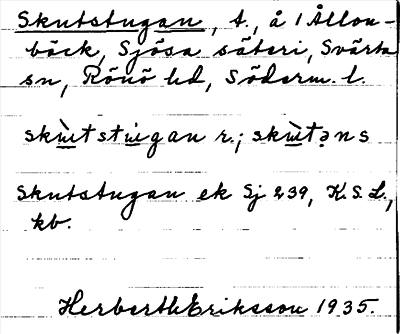 Skutstugan, t., å 1 Ållon-
bäck, Sjösa säteri, Svärta
sn, Rönö hd, Söderm. l.
skùtstùgan r.; skùtəns
Skutstugan ek Sj 239, K.S.L.,
kb.
Herbert Eriksson 1935.